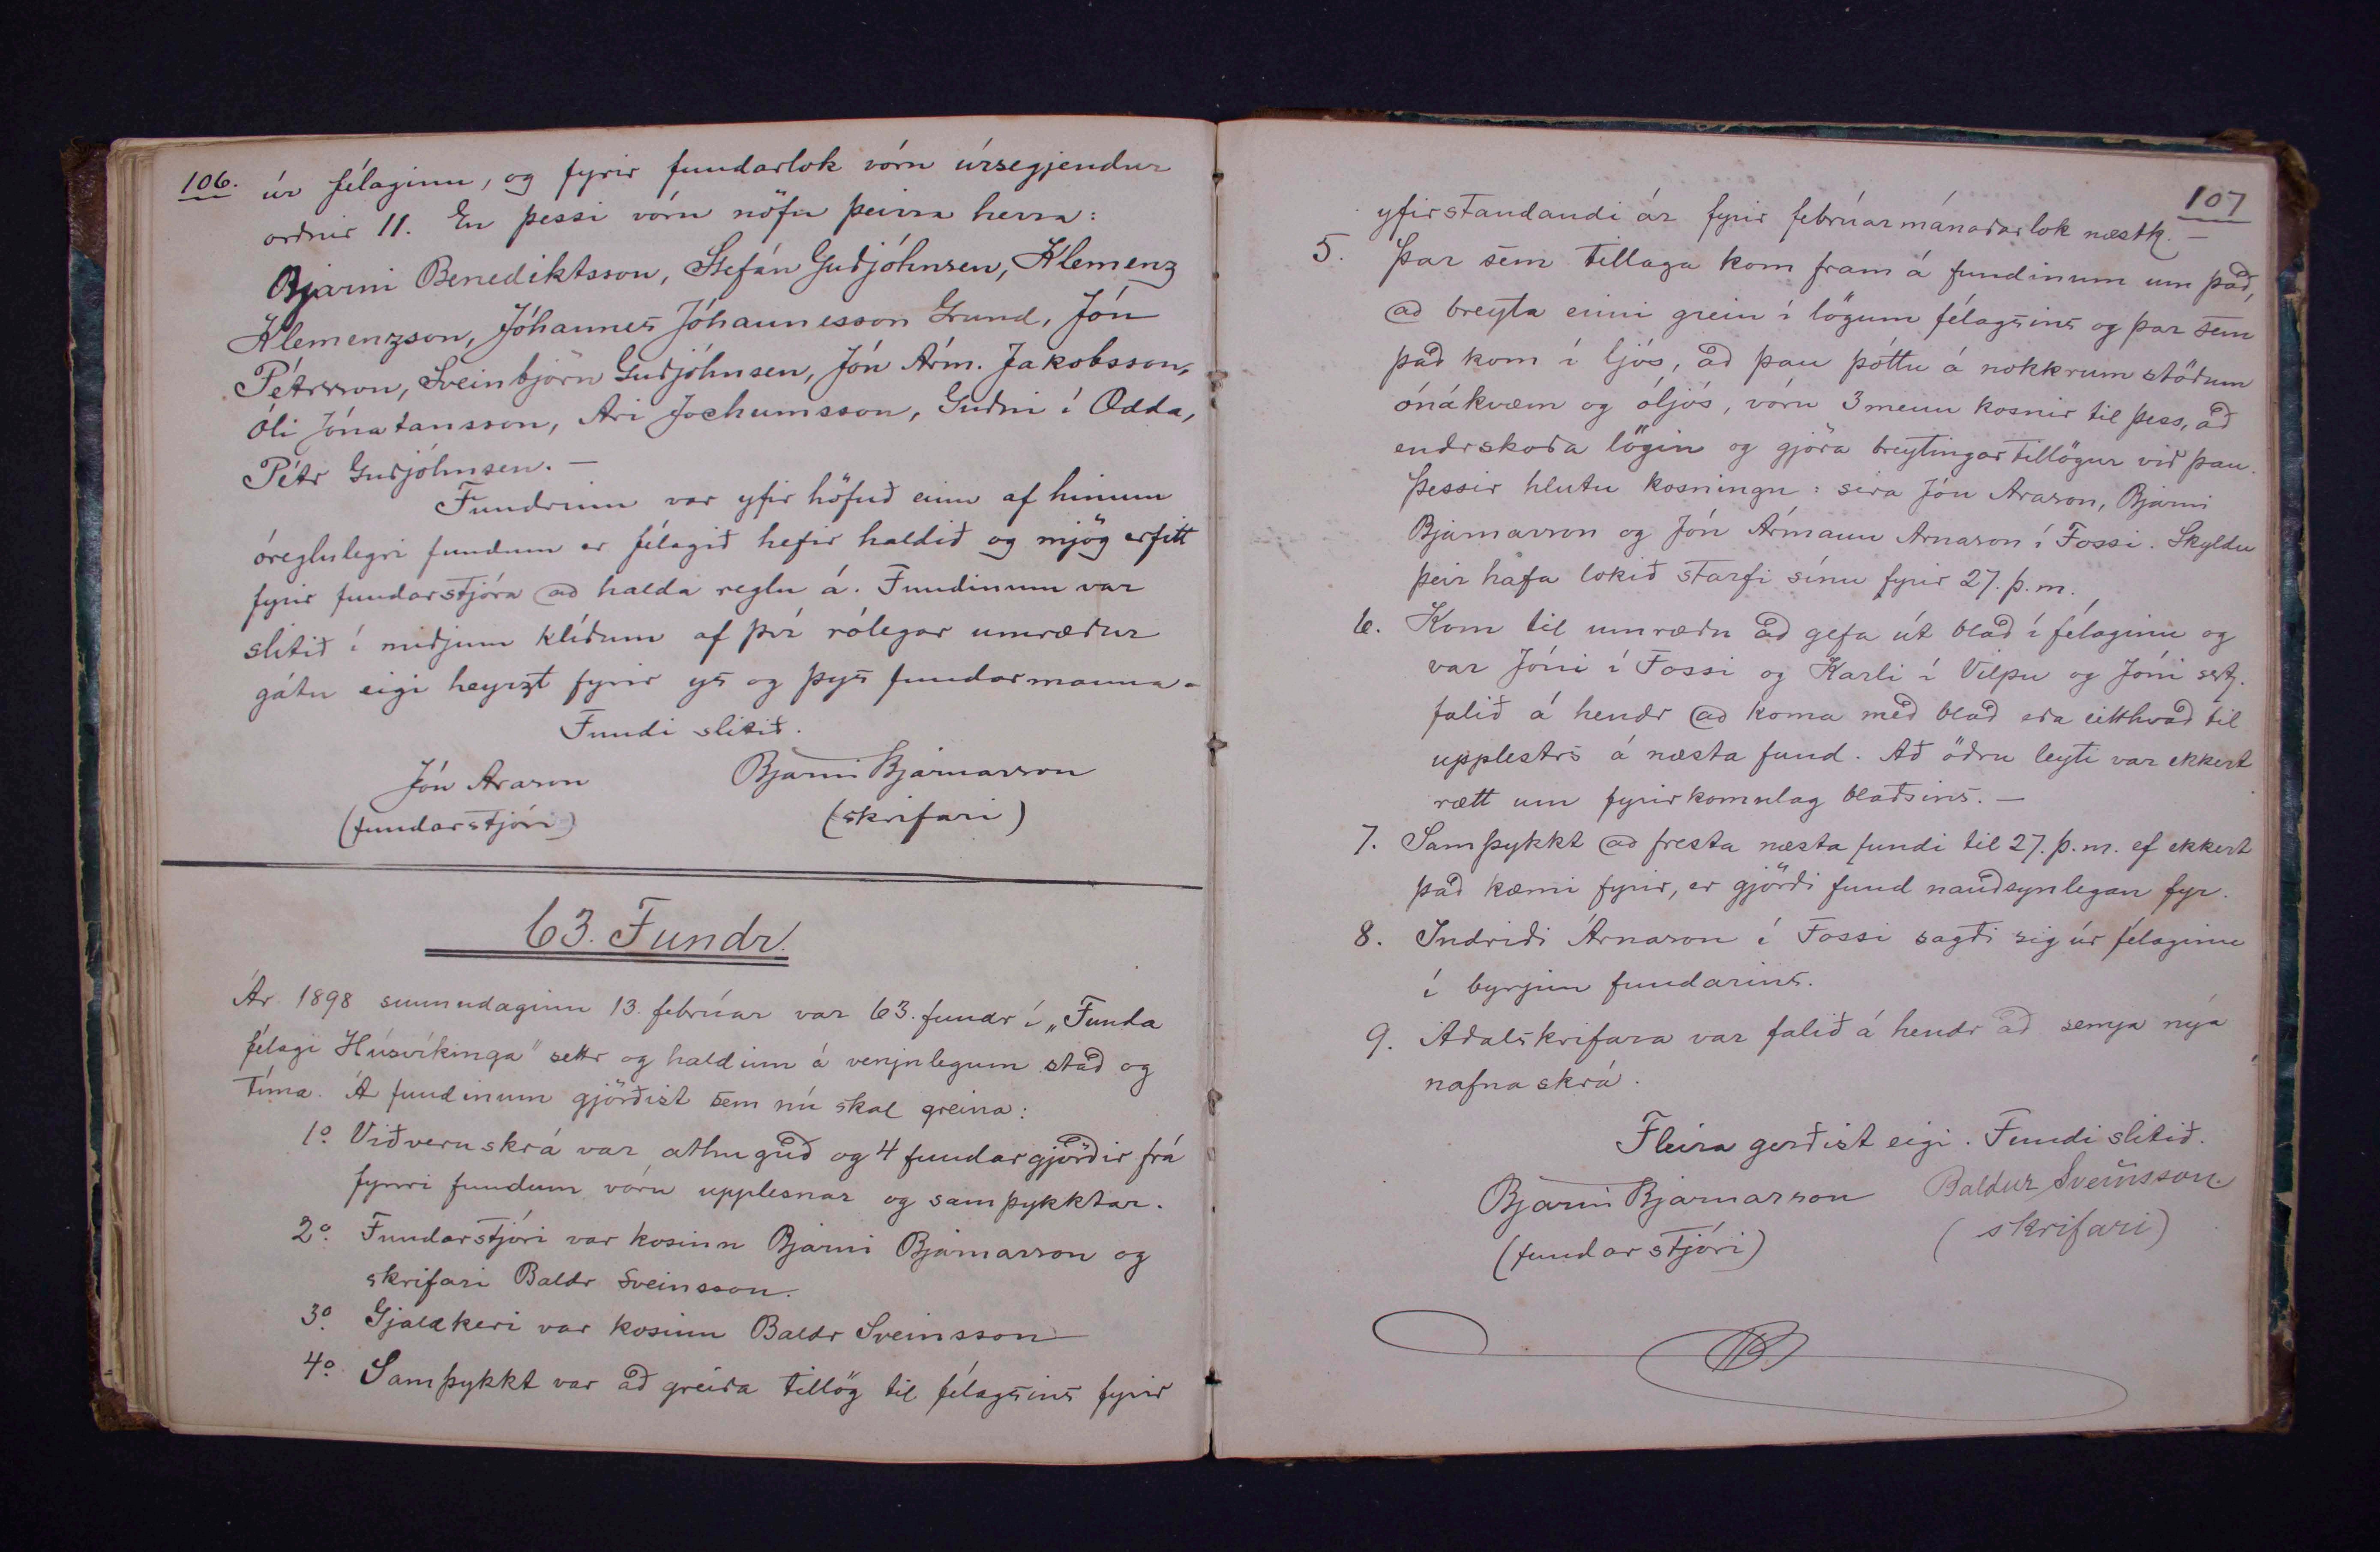 106.
úr félaginu, og fyrir fundarlok vóru úrsegjendur
orðnir 11. En þessi vóru nöfn þeirra herra:
Bjarni Benediktsson, Stefán Guðjóhnsen, Klemenz
Klemenzson, Jóhannes Jóhannesson Grund, Jón
Pétrsson, Sveinbjörn Guðjóhnsen, Jón Árm. Jakobsson,
Óli Jónatansson, Ari Jochumsson, Guðni í Odda,
Pétr Guðjóhnsen. —
Fundrinn var yfir höfuð einn af hinum
óreglulegri fundum er félagið hefir haldið og mjög erfitt
fyrir fundarstjóra að halda reglu á. Fundinum var
slitið í miðjum klíðum af því rólegar umræður
gátu eigi heyrzt fyrir ys og þys fundarmanna.
Fundi slitið.
Jón Arason Bjarni Bjarnarson
(fundarstjóri) (skrifari)
63. Fundr.
Ár 1898 sunnudaginn 13. febrúar var 63. fundr í „Funda
félagi Húsvíkinga" settr og haldinn á venjulegum stað og
tíma. Á fundinum gjörðist sem nú skal greina:
1o. Viðveruskrá var athuguð og 4 fundargjörðir frá
fyrri fundum vóru upplesnar og samþykktar.
2o. Fundarstjóri var kosinn Bjarni Bjarnarson og
skrifari Baldr Sveinsson.
3o. Gjaldkeri var kosinn Baldr Sveinsson
4o. Samþykkt var að greiða tillög til félagsins fyrir
107
yfirstandandi ár fyrir febrúarmánaðarlok næstk. —
5. Þar sem tillaga kom fram á fundinum um það,
að breyta einni grein í lögum félagsins og þar sem
það kom í ljós, að þau þóttu á nokkrum stöðum
ónákvæm og óljós, vóru 3 menn kosnir til þess, að
endrskoða lögin og gjöra breytingartillögur við þau.
Þessir hlutu kosningu: síra Jón Arason, Bjarni
Bjarnarson og Jón Ármann Árnason í Fossi. Skyldu
þeir hafa lokið starfi sínu fyrir 27. þ.m.
6. Kom til umræðu að gefa út blað í félaginu og
var Jóni í Fossi og Karli í Vilpu og Jóni
falið á hendr að koma með blað eða eitthvað til
upplestrs á næsta fund. Að öðru leyti var ekkert
rætt um fyrirkomulag blaðsins. —
7. Samþykkt að fresta næsta fundi til 27. þ.m. ef ekkert
það kæmi fyrir, er gjörði fund nauðsynlegan fyr.
8. Indriði Árnason í Fossi sagði sig úr félaginu
í byrjun fundarins.
9. Aðalskrifara var falið á hendr að semja nýja
nafnaskrá.
Fleira gerðist eigi. Fundi slitið.
Bjarni Bjarnarson Baldur Sveinsson.
(fundarstjóri) (skrifari)